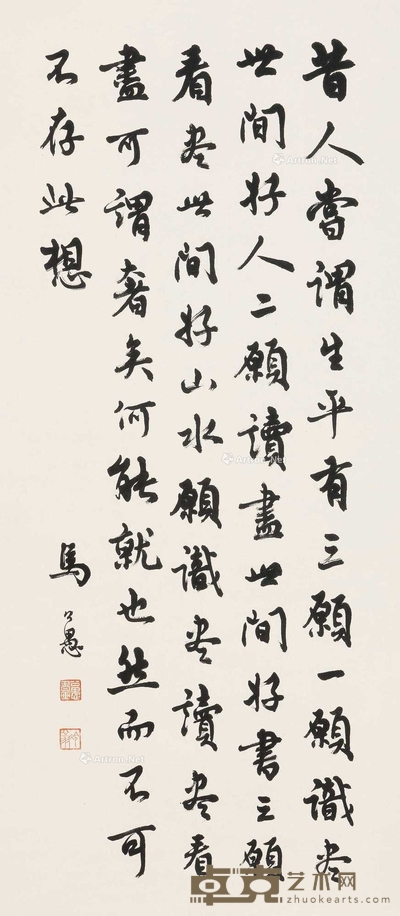 昔人嘗謂生平有三願一願識尽
世間好人二願讀盡世間好書三願
看尽世間好山水願識尽讀尽看
盡可謂奢矣何能就也然而不可
不存此想
馬公愚
Artron.Net
Artron.Net
Artron.Net
Artron.Net
卓克艺术网
zhuokearts.com